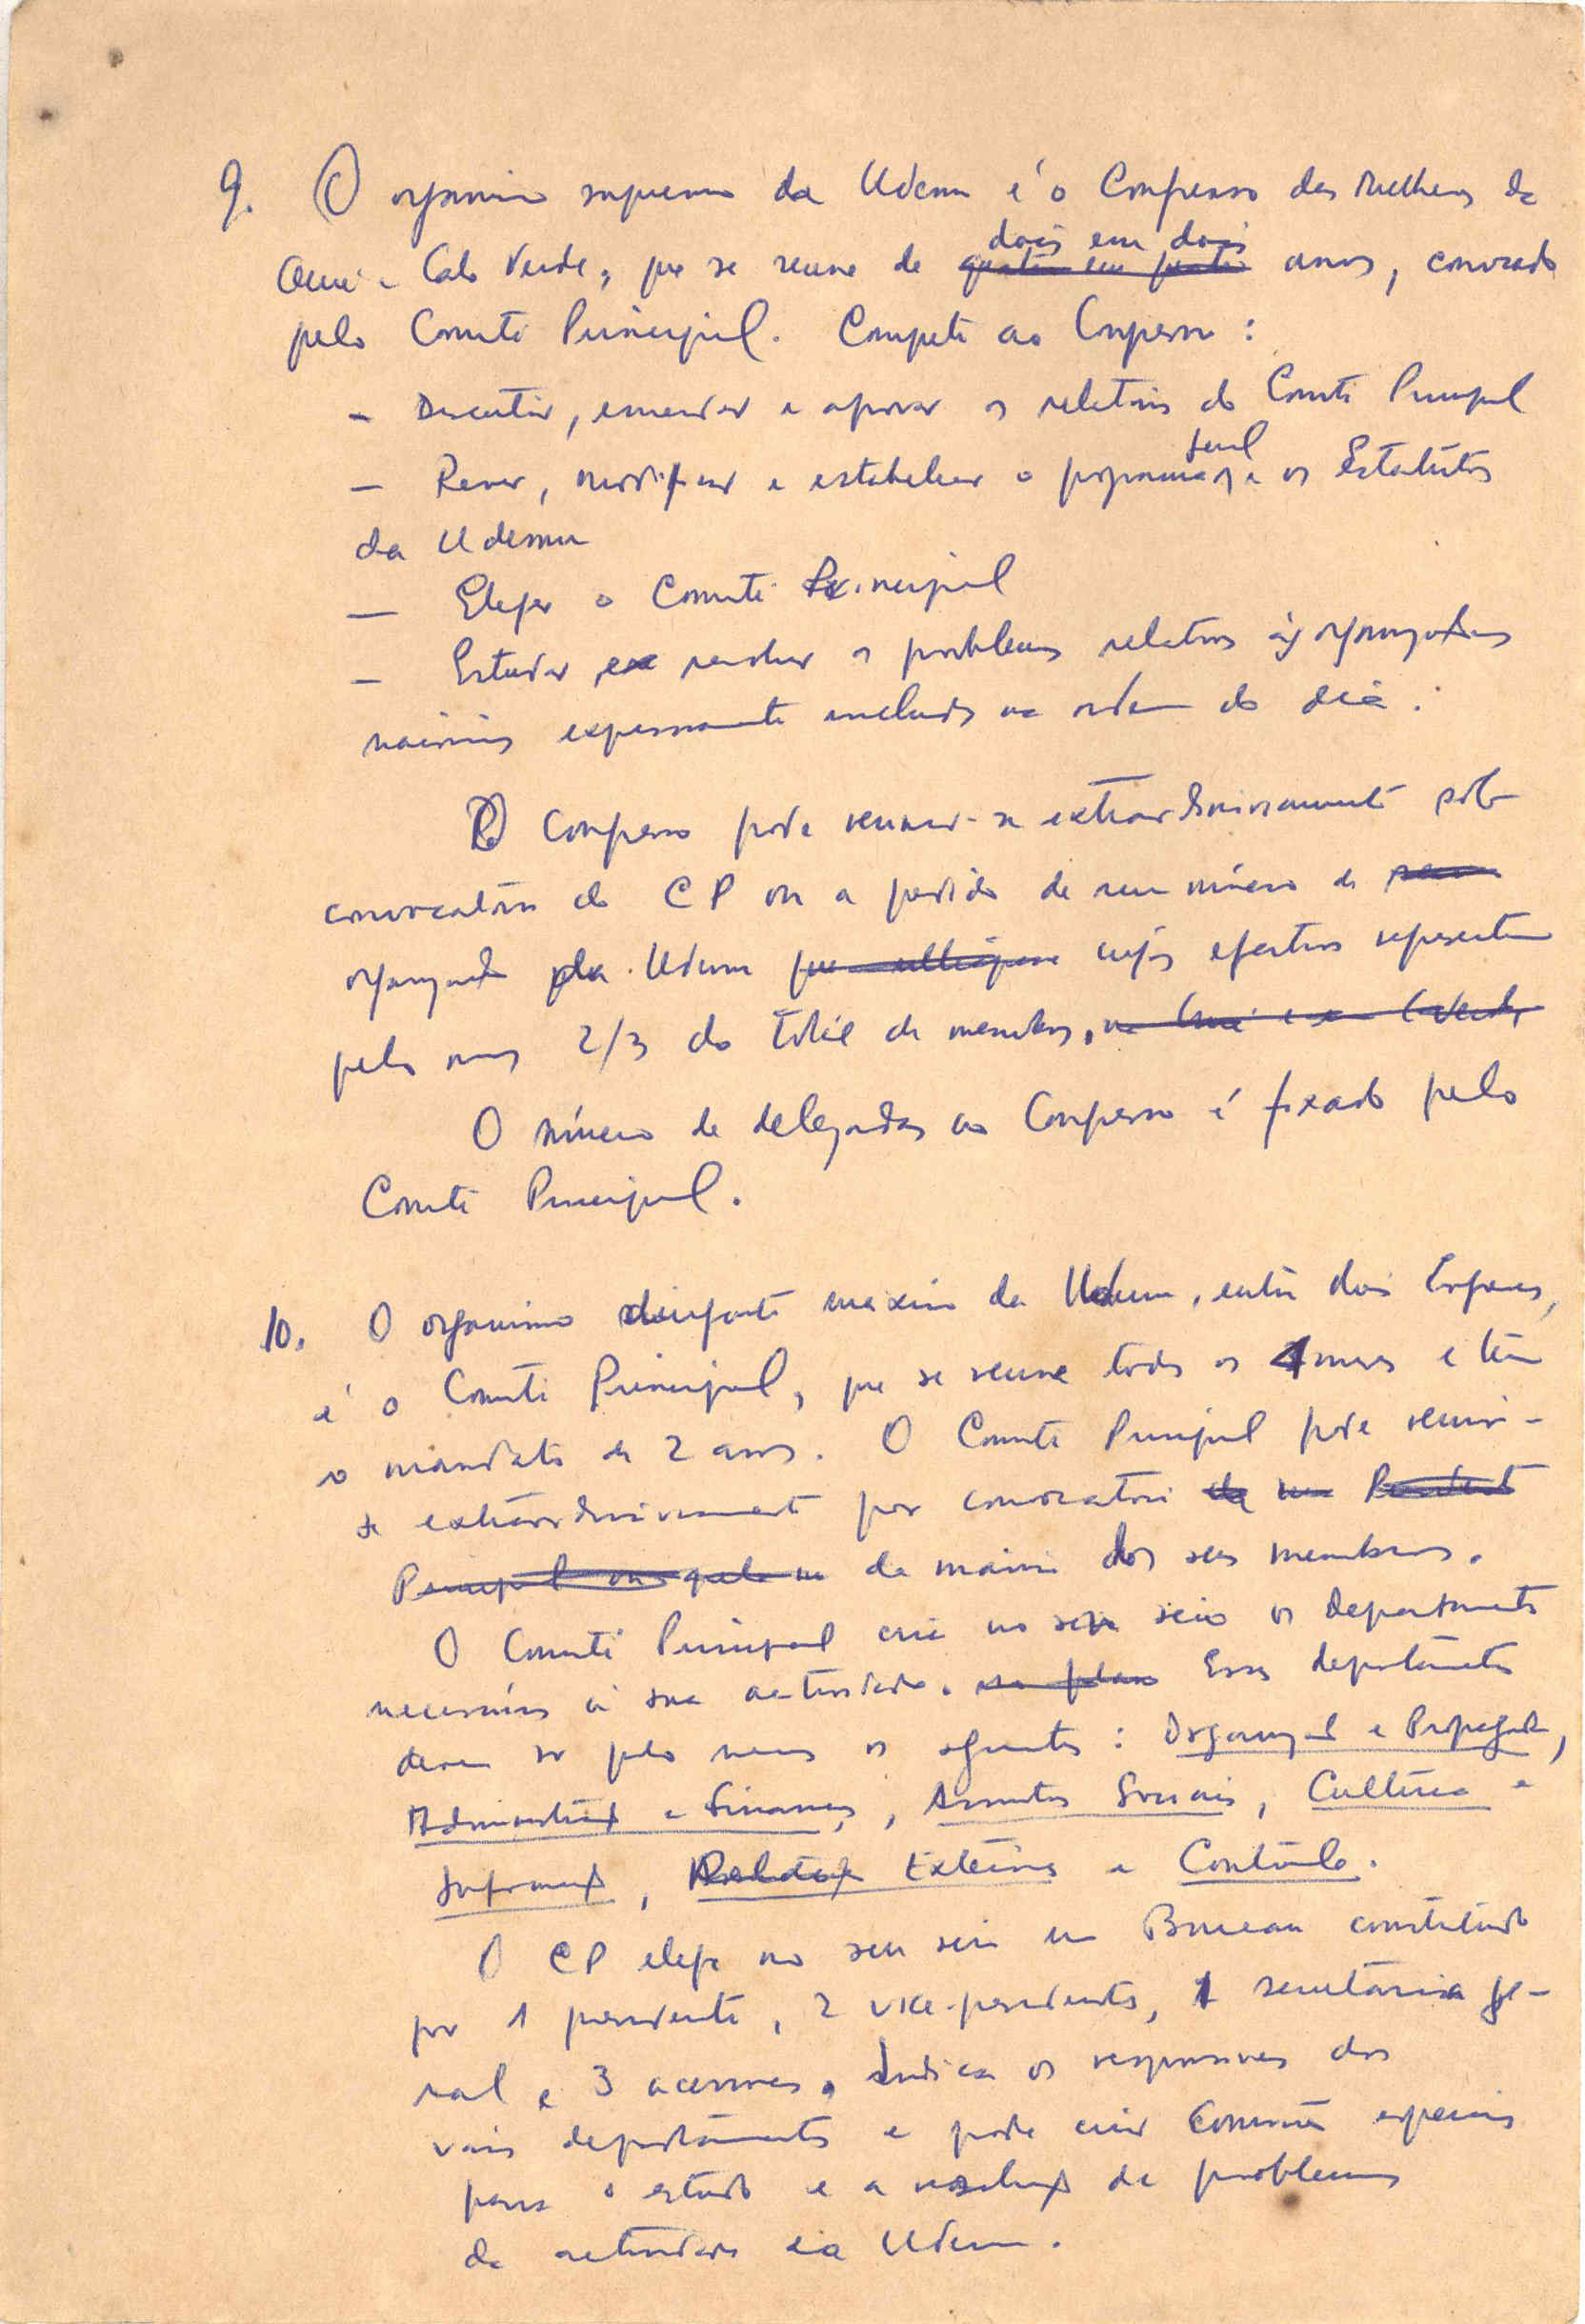 9. O organismo supremo da Udemu é o Congresso das Mulheres da
Guiné e Cabo Verde, que se reune de ~~quatro em quatro~~ dois em dois anos, convocado
pelo Comité Principal. Compete ao Congresso:
— Discutir, emendar e aprovar os relatórios do Comité Principal
— Rever, modificar e estabelecer o programa geral e os Estatutos
da Udemu
— Eleger o Comité Principal
— Estudar e resolver os problemas relativos às organizações
expressamente incluidos na ordem do dia.
O Congresso pode reunir-se extraordinariamente sob
convocatória do CP ou a pedido de um número de
organizações da Udemu cujos efectivos representem
pelo menos 2/3 do total de membros.
O número de delegadas ao Congresso é fixado pelo
Comité Principal.
10. O organismo dirigente máximo da Udemu, entre dois Congressos,
é o Comité Principal, que se reune todos os 4 meses e tem
o mandato de 2 anos. O Comité Principal pode reunir-
se extraordinariamente por convocatória
da maioria dos seus membros.
O Comité Principal cria no seu seio os departamentos
necessários à sua actividade. Esses departamentos
devem ser pelo menos os seguintes: Organização e Propaganda,
Administração e Finanças, Assuntos Sociais, Cultura e
Informação, Relações Exteriores e Contrôle.
O CP elege no seu seio um Bureau constituido
por 1 presidente, 2 vice-presidentes, 1 secretária ge-
ral e 3 assessores. Indica os responsáveis dos
vários departamentos e pode criar comissões especiais
para o estudo e a resolução de problemas
da actividade da Udemu.